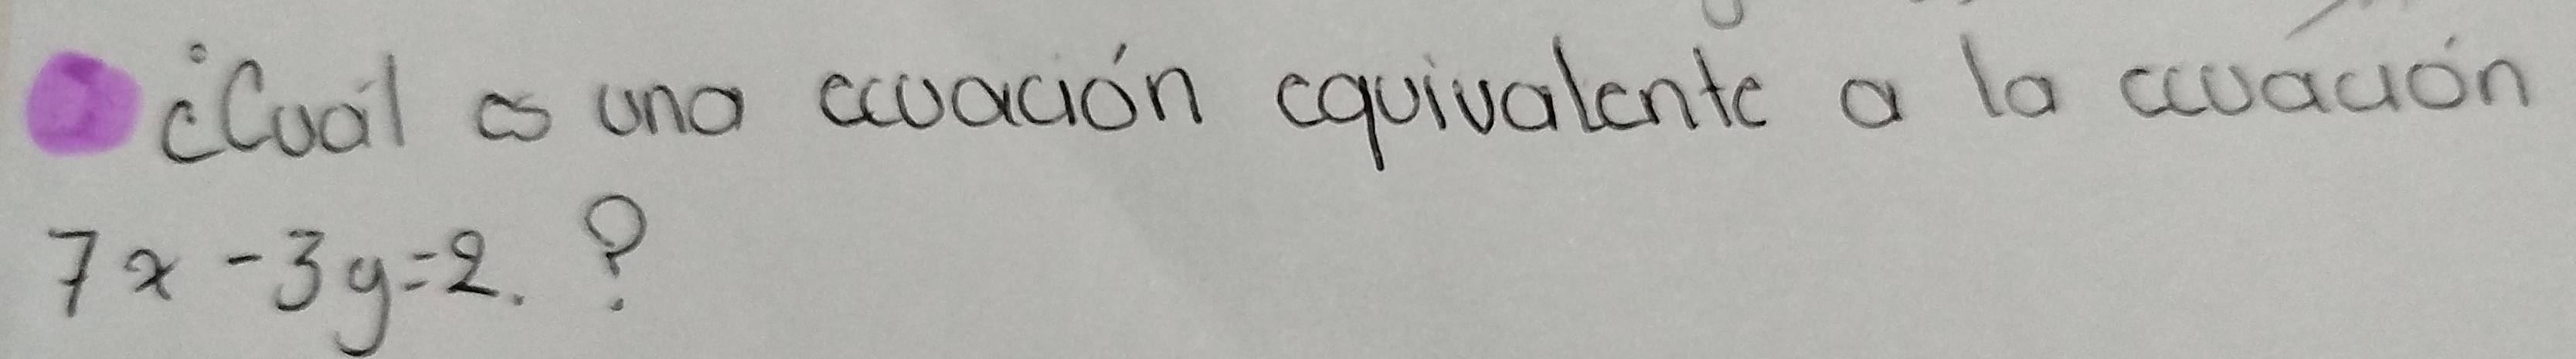 ¿Cuál es una ecuación equivalente a la ecuación
7x - 3y = 2. ?